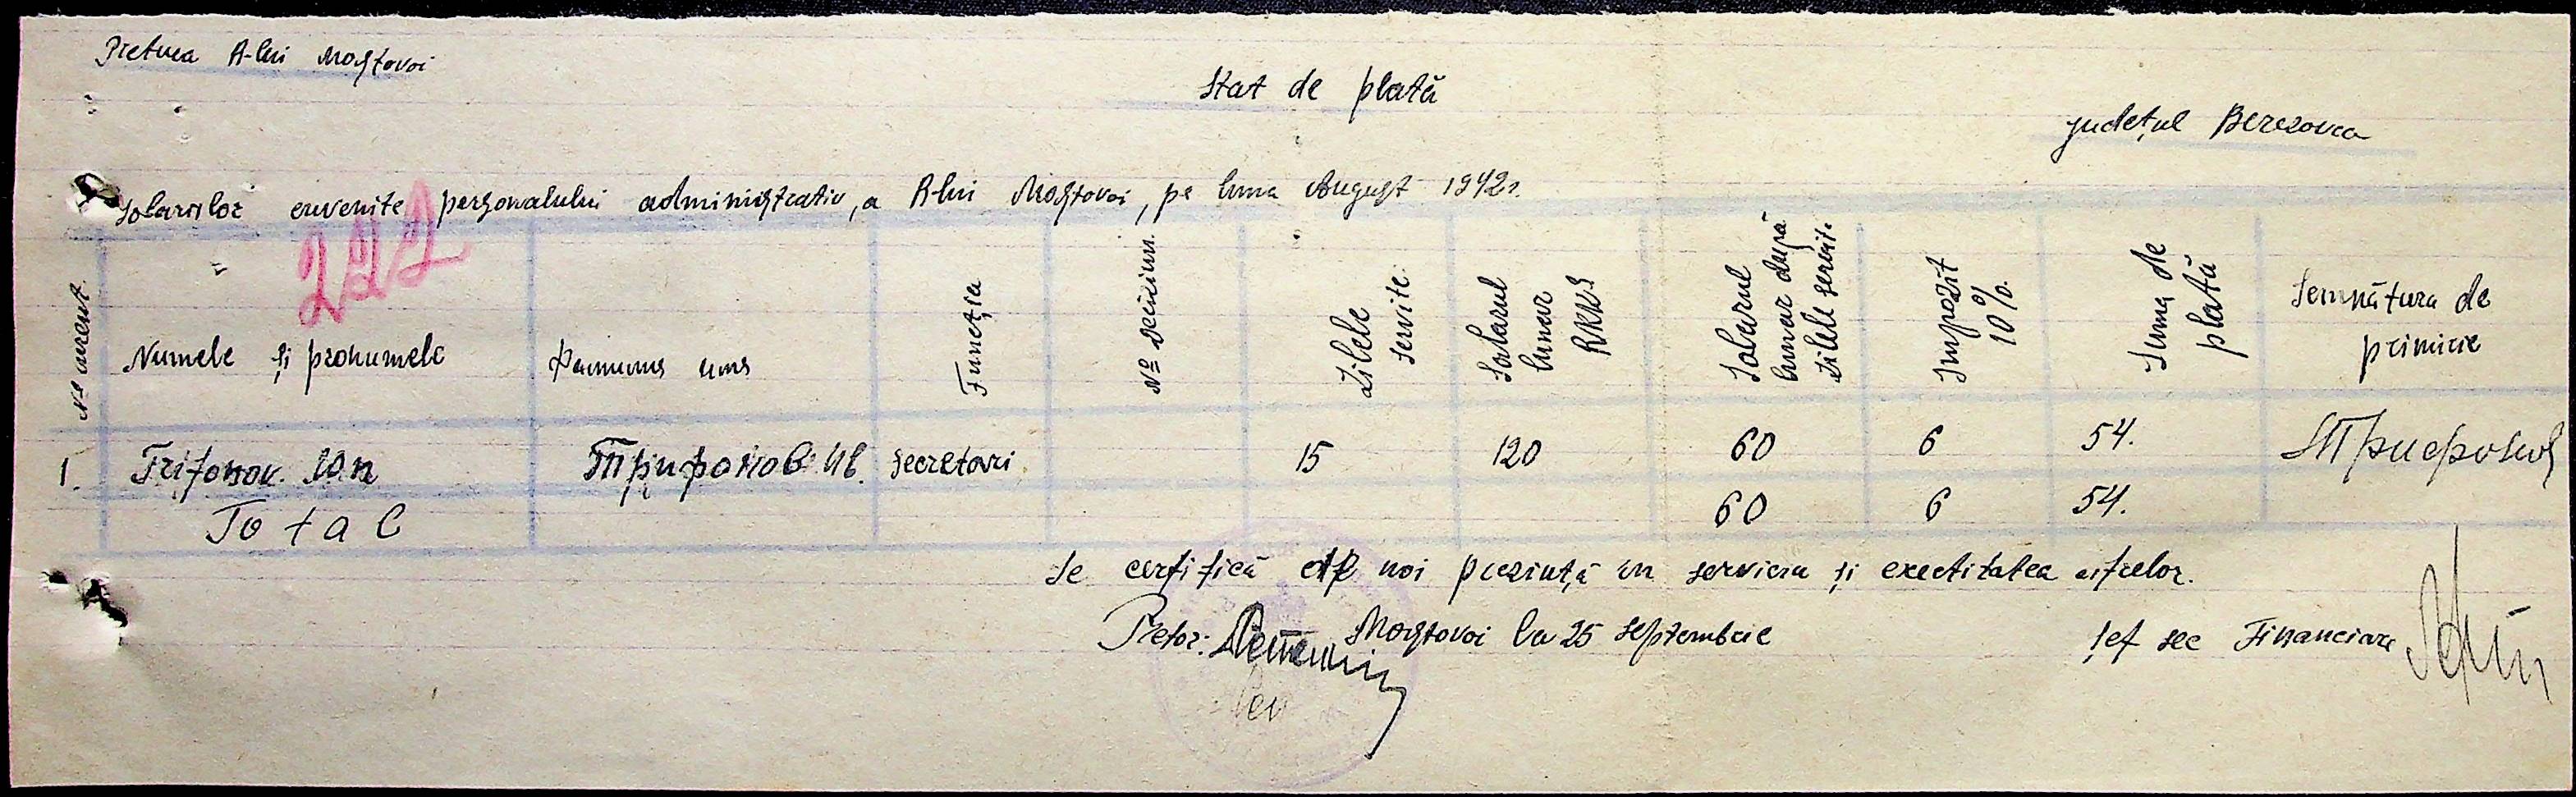 Pretura R-lui Mostovoi
Stat de plată
județul Berezovca
Salariilor cuvenite personalului administrativ, a R-lui Mostovoi, pe luna August 1942.
222
№ curent.
Numele și pronumele
Фамилия имя
Funcția
№ Deciziun.
Zilele servite.
Salarul lunar RKKS
Salarul lunar după zilele servite
Impozit 10%.
Suma de plată
Semnătura de primire
1. Trifonov. Ion Трифонов. Ив. secretari 15 120 60 6 54. Трифонов
Total 60 6 54.
Se certifică de noi prezință în serviciu și exectitatea cifrelor.
Pretor: Mostovoi la 25 Septembrie șef sec Financiare